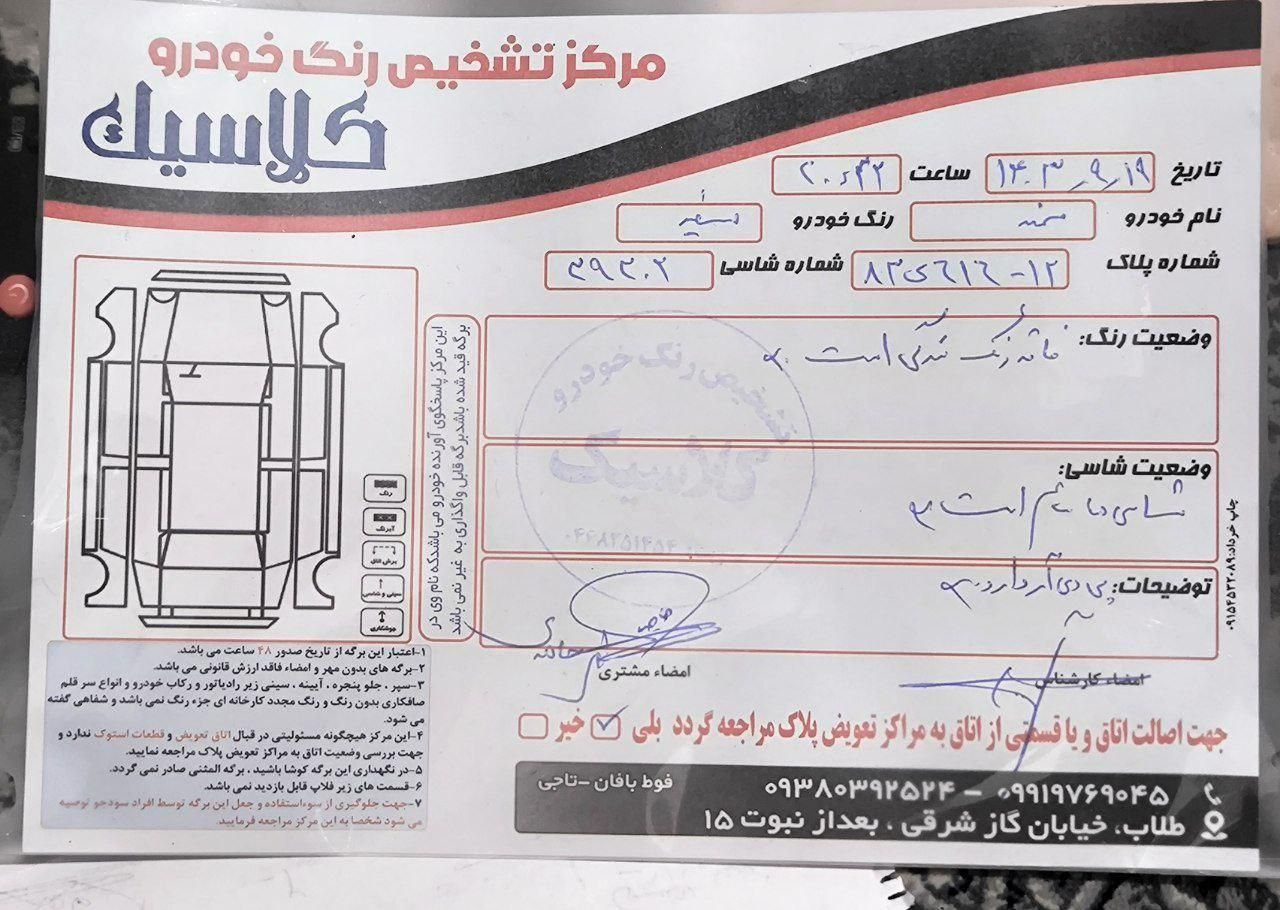 مرکز تشخیص رنگ خودرو
کلاسیک
تاریخ ۱۴۰۳٫۹٫۱۹ ساعت ۲۰:۳۲
نام خودرو سمند رنگ خودرو سفید
شماره پلاک ۱۲-۶۱۶ی۸۳ شماره شاسی ۳۹۳۰۲
وضعیت رنگ: فاقد رنگ شدگی است
وضعیت شاسی:
شاسی ها سالم است
توضیحات: پی دی آر دارد
این مرکز پاسخگوی آورنده خودرو می باشدکه نام وی در
برگه قید شده باشدبرگه قابل واگذاری به غیر نمی باشد
رنگ
آبرنگ
برش اتاق
سینی و شاسی
جوشکاری
تشخیص رنگ خودرو
کلاسیک
امضاء مشتری
امضاء کارشناس
۱-اعتبار این برگه از تاریخ صدور ۴۸ ساعت می باشد.
۲-برگه های بدون مهر و امضاء فاقد ارزش قانونی می باشد.
۳-سپر ، جلو پنجره ، آیینه ، سینی زیر رادیاتور و رکاب خودرو و انواع سر قلم
صافکاری بدون رنگ و رنگ مجدد کارخانه ای جزء رنگ نمی باشد و شفاهی گفته
می شود.
۴-این مرکز هیچگونه مسئولیتی در قبال اتاق تعویض و قطعات استوک ندارد و
جهت بررسی وضعیت اتاق به مراکز تعویض پلاک مراجعه نمایید.
۵-در نگهداری این برگه کوشا باشید ، برگه المثنی صادر نمی گردد.
۶-قسمت های زیر فلاپ قابل بازدید نمی باشد.
۷-جهت جلوگیری از سوءاستفاده و جعل این برگه توسط افراد سودجو توصیه
می شود شخصا به این مرکز مراجعه فرمایید.
جهت اصالت اتاق و یا قسمتی از اتاق به مراکز تعویض پلاک مراجعه گردد بلی خیر
۰۹۹۱۹۷۶۹۰۴۵ - ۰۹۳۸۰۳۹۲۵۲۴ فوط بافان -تاجی
طلاب، خیابان گاز شرقی ، بعداز نبوت ۱۵
چاپ خرداد:۰۹۱۵۴۵۳۲۰۸۹